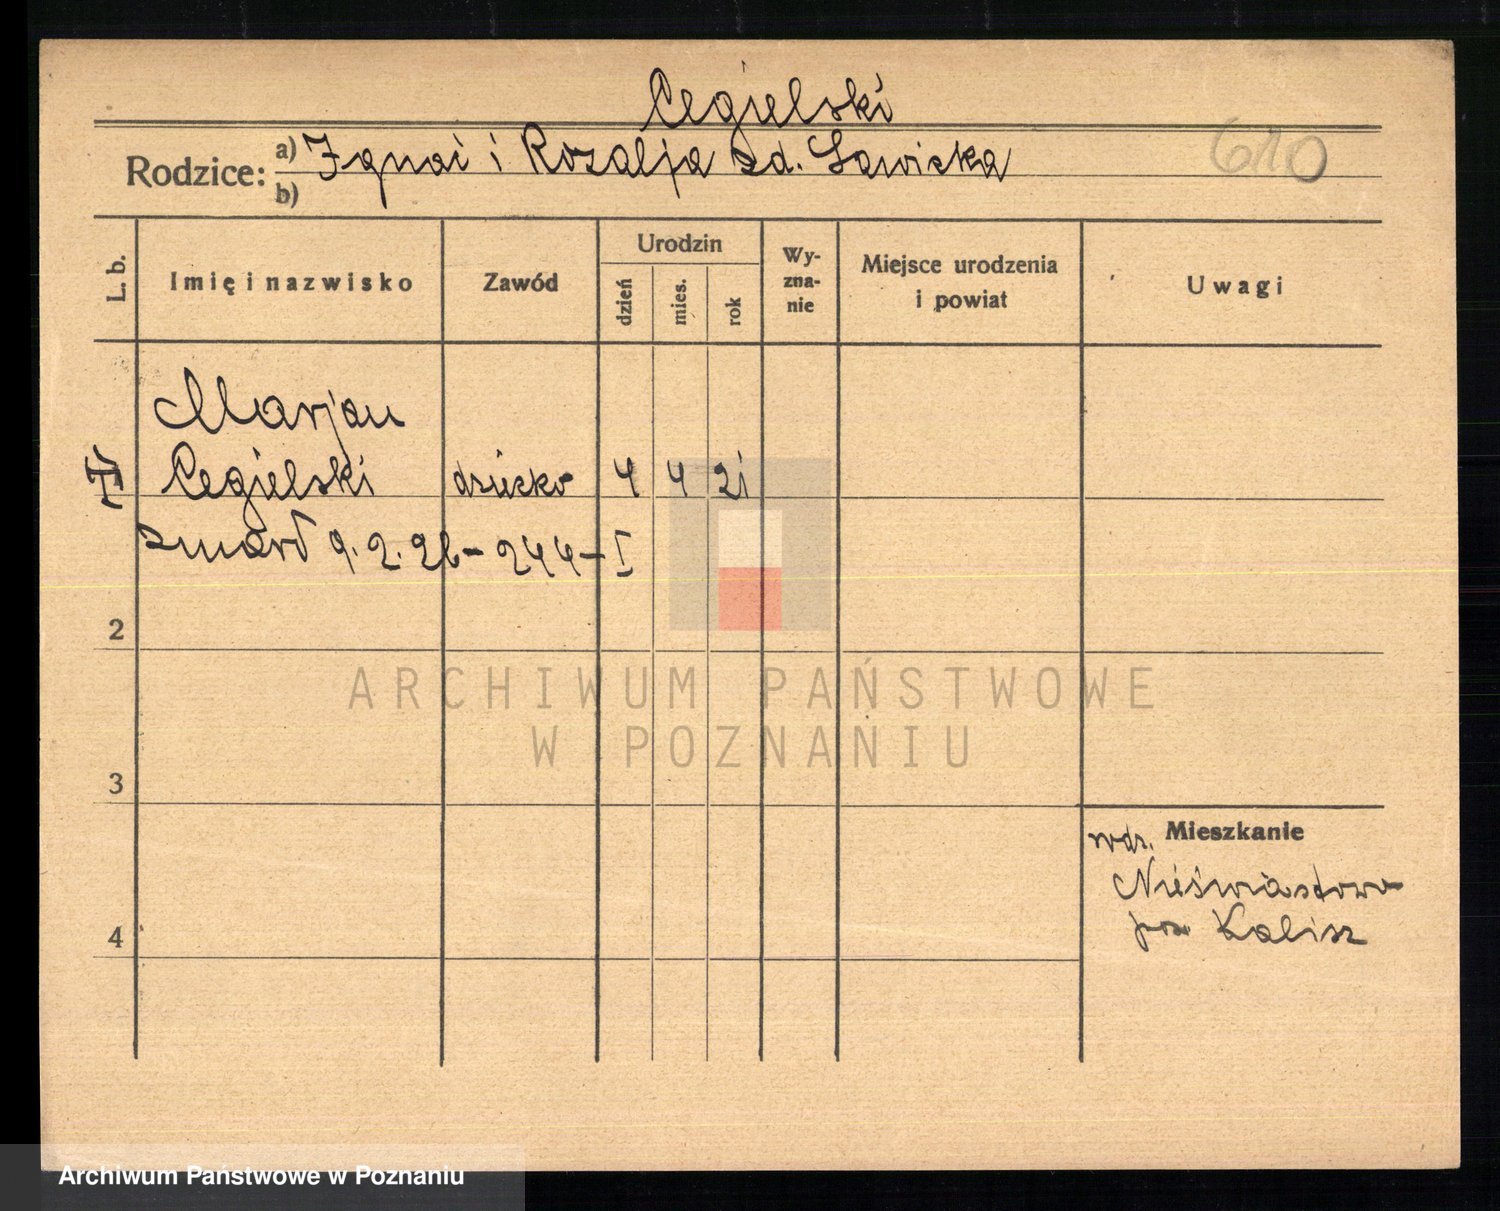 Cegielski
610
Rodzice: a) Ignac i Rozalja zd. Sawicka
b)
L. b.
Imię i nazwisko
Zawód
Urodzin
dzień
mies.
rok
Wy-
zna-
nie
Miejsce urodzenia
i powiat
Uwagi
Marjan
Cegielski dziecko 4 4 21
zmarł 9.2.26 - 244 - I
2
3
4
Mieszkanie
wdr.
Nieświastowo
pow Kalisz
ARCHIWUM PAŃSTWOWE
W POZNANIU
Archiwum Państwowe w Poznaniu